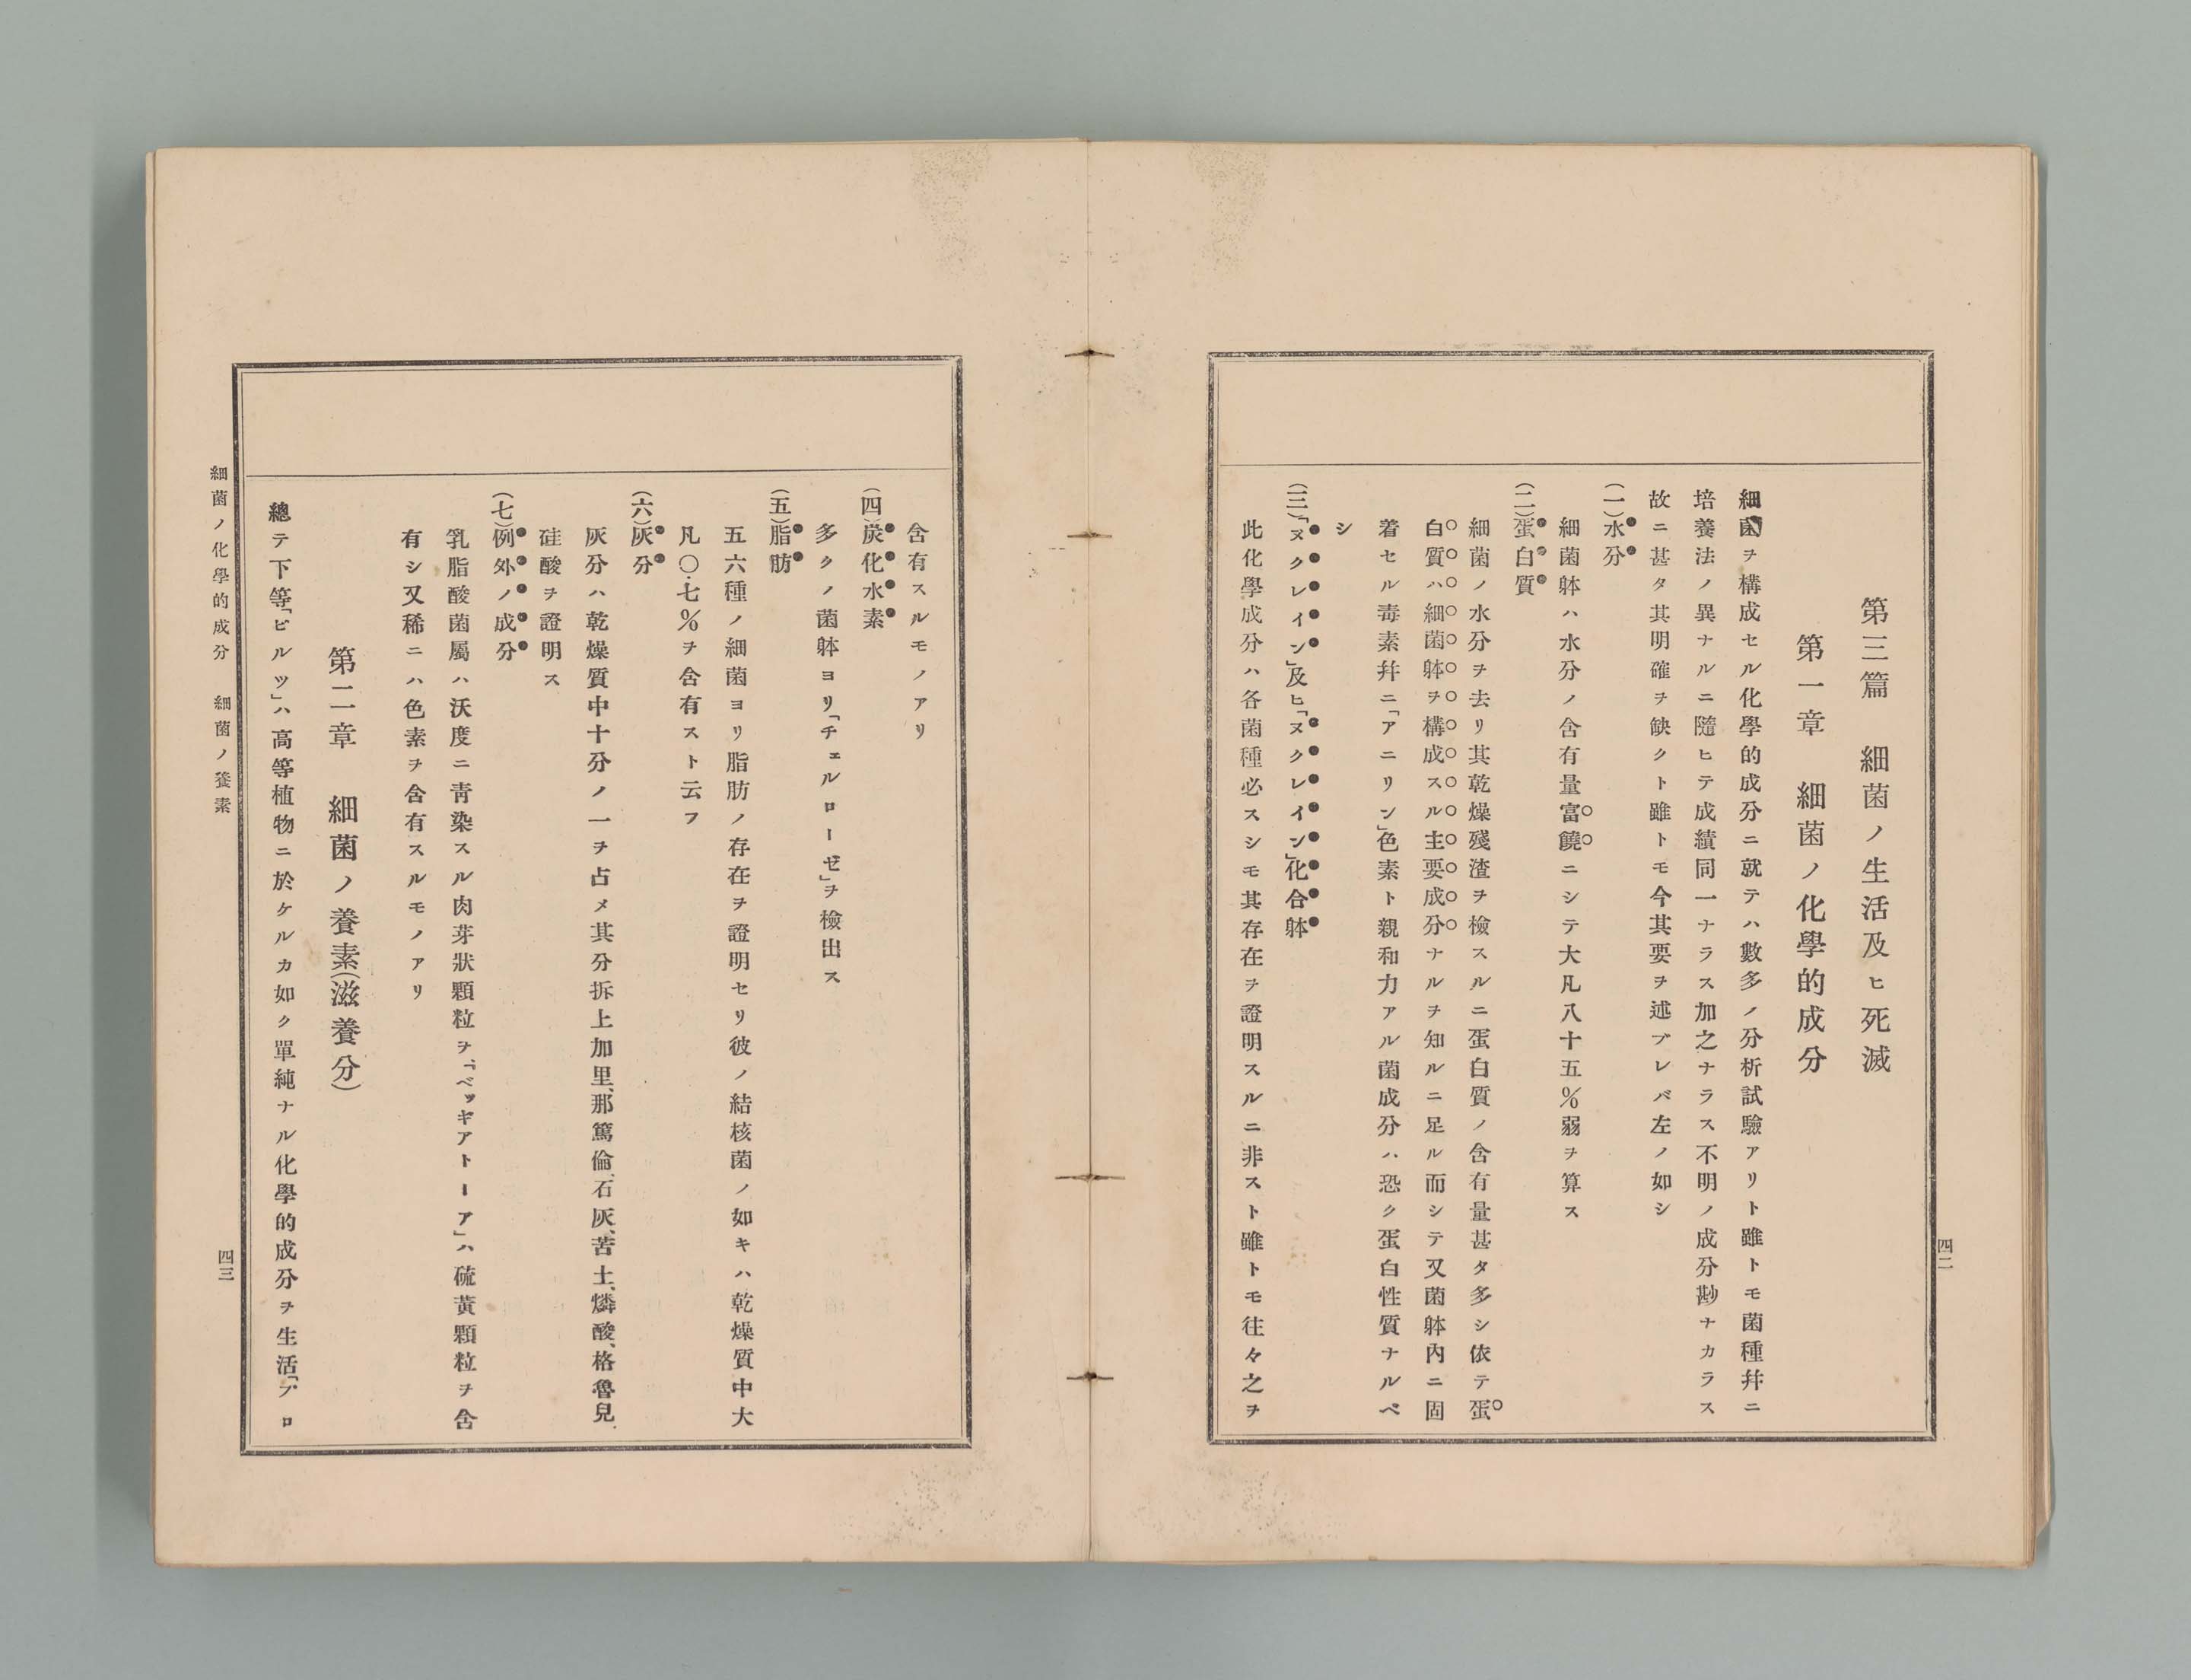 第三篇　細菌ノ生活及ヒ死滅
第一章　細菌ノ化學的成分
細菌ヲ構成セル化學的成分ニ就テハ數多ノ分析試驗アリト雖トモ菌種幷ニ
培養法ノ異ナルニ隨ヒテ成績同一ナラス加之ナラス不明ノ成分尠ナカラス
故ニ甚タ其明確ヲ缺クト雖トモ今其要ヲ述ブレバ左ノ如シ
(一)水分
細菌躰ハ水分ノ含有量富饒ニシテ大凡八十五%弱ヲ算ス
(二)蛋白質
細菌ノ水分ヲ去リ其乾燥殘渣ヲ檢スルニ蛋白質ノ含有量甚タ多シ依テ蛋
白質ハ細菌躰ヲ構成スル主要成分ナルヲ知ルニ足ル而シテ又菌躰內ニ固
着セル毒素幷ニ「アニリン」色素ト親和力アル菌成分ハ恐ク蛋白性質ナルベ
シ
(三)「ヌクレイン」及ヒ「ヌクレイン」化合躰
此化學成分ハ各菌種必スシモ其存在ヲ證明スルニ非スト雖トモ往々之ヲ
四二
含有スルモノアリ
(四)炭化水素
多クノ菌躰ヨリ「チェルローゼ」ヲ檢出ス
(五)脂肪
五六種ノ細菌ヨリ脂肪ノ存在ヲ證明セリ彼ノ結核菌ノ如キハ乾燥質中大
凡〇.七%ヲ含有スト云フ
(六)灰分
灰分ハ乾燥質中十分ノ一ヲ占メ其分拆上加里、那篤倫、石灰、苦土、燐酸、格魯兒、
硅酸ヲ證明ス
(七)例外ノ成分
乳脂酸菌屬ハ沃度ニ靑染スル肉芽狀顆粒ヲ「ベッギアトーア」ハ硫黃顆粒ヲ含
有シ又稀ニハ色素ヲ含有スルモノアリ
第二章　細菌ノ養素(滋養分)
總テ下等「ピルツ」ハ高等植物ニ於ケルカ如ク單純ナル化學的成分ヲ生活「プロ
細菌ノ化學的成分　細菌ノ養素
四三